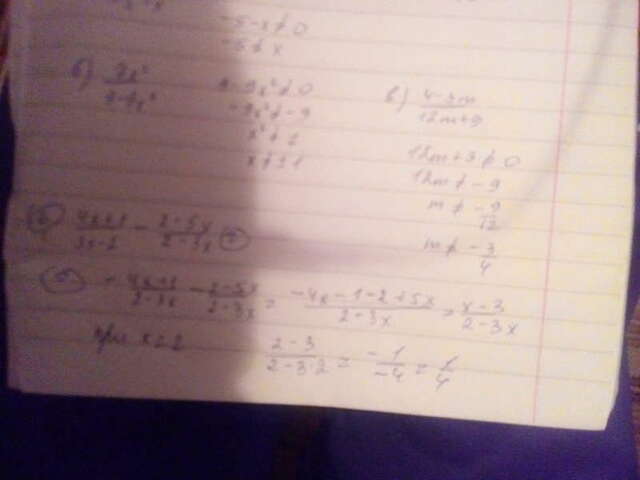 -5-x≠0
-5≠x
б) 9x²/9-9x² 9-9x²≠0
-9x²≠-9
x²≠1
x≠±1
в) 4-3m/12m+9
12m+9≠0
12m≠-9
m≠-9/12
m≠-3/4
4x+1/3x-2 - 2-5x/2-3x =
= -4x+1/2-3x - 2-5x/2-3x = -4x-1-2+5x/2-3x = x-3/2-3x
при x=2 2-3/2-3·2 = -1/-4 = 1/4